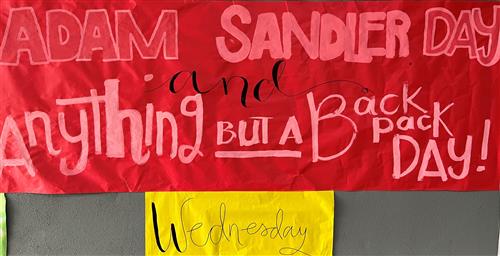 ADAM SANDLER DAY
and
Anything BUT A Back pack DAY!
Wednesday